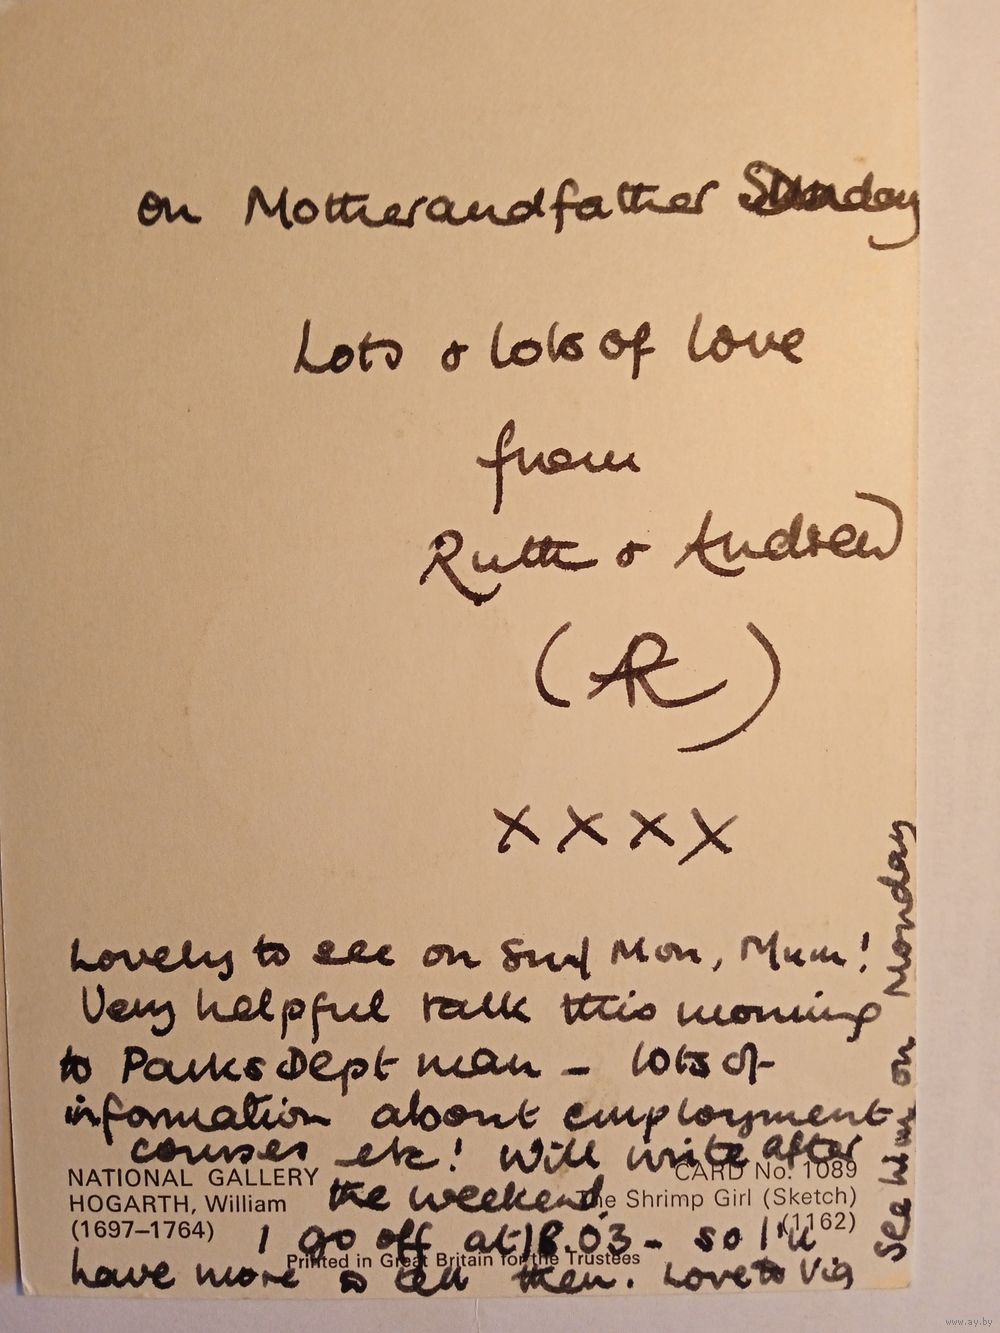 on Motherandfather Sunday
Lots & lots of love
from
Ruth & Andrew
(AR)
xxxx
Lovely to see on Sun/Mon, Mum!
Very helpful talk this morning
to Parks Dept man - lots of
information about employment
courses etc! Will write after
the weekend.
I go off at 18.03 - so I'll
have more to tell then. Love to Vig
see him on Monday
NATIONAL GALLERY
HOGARTH, William
(1697–1764)
CARD No. 1089
The Shrimp Girl (Sketch)
(1162)
Printed in Great Britain for the Trustees
www.ay.by